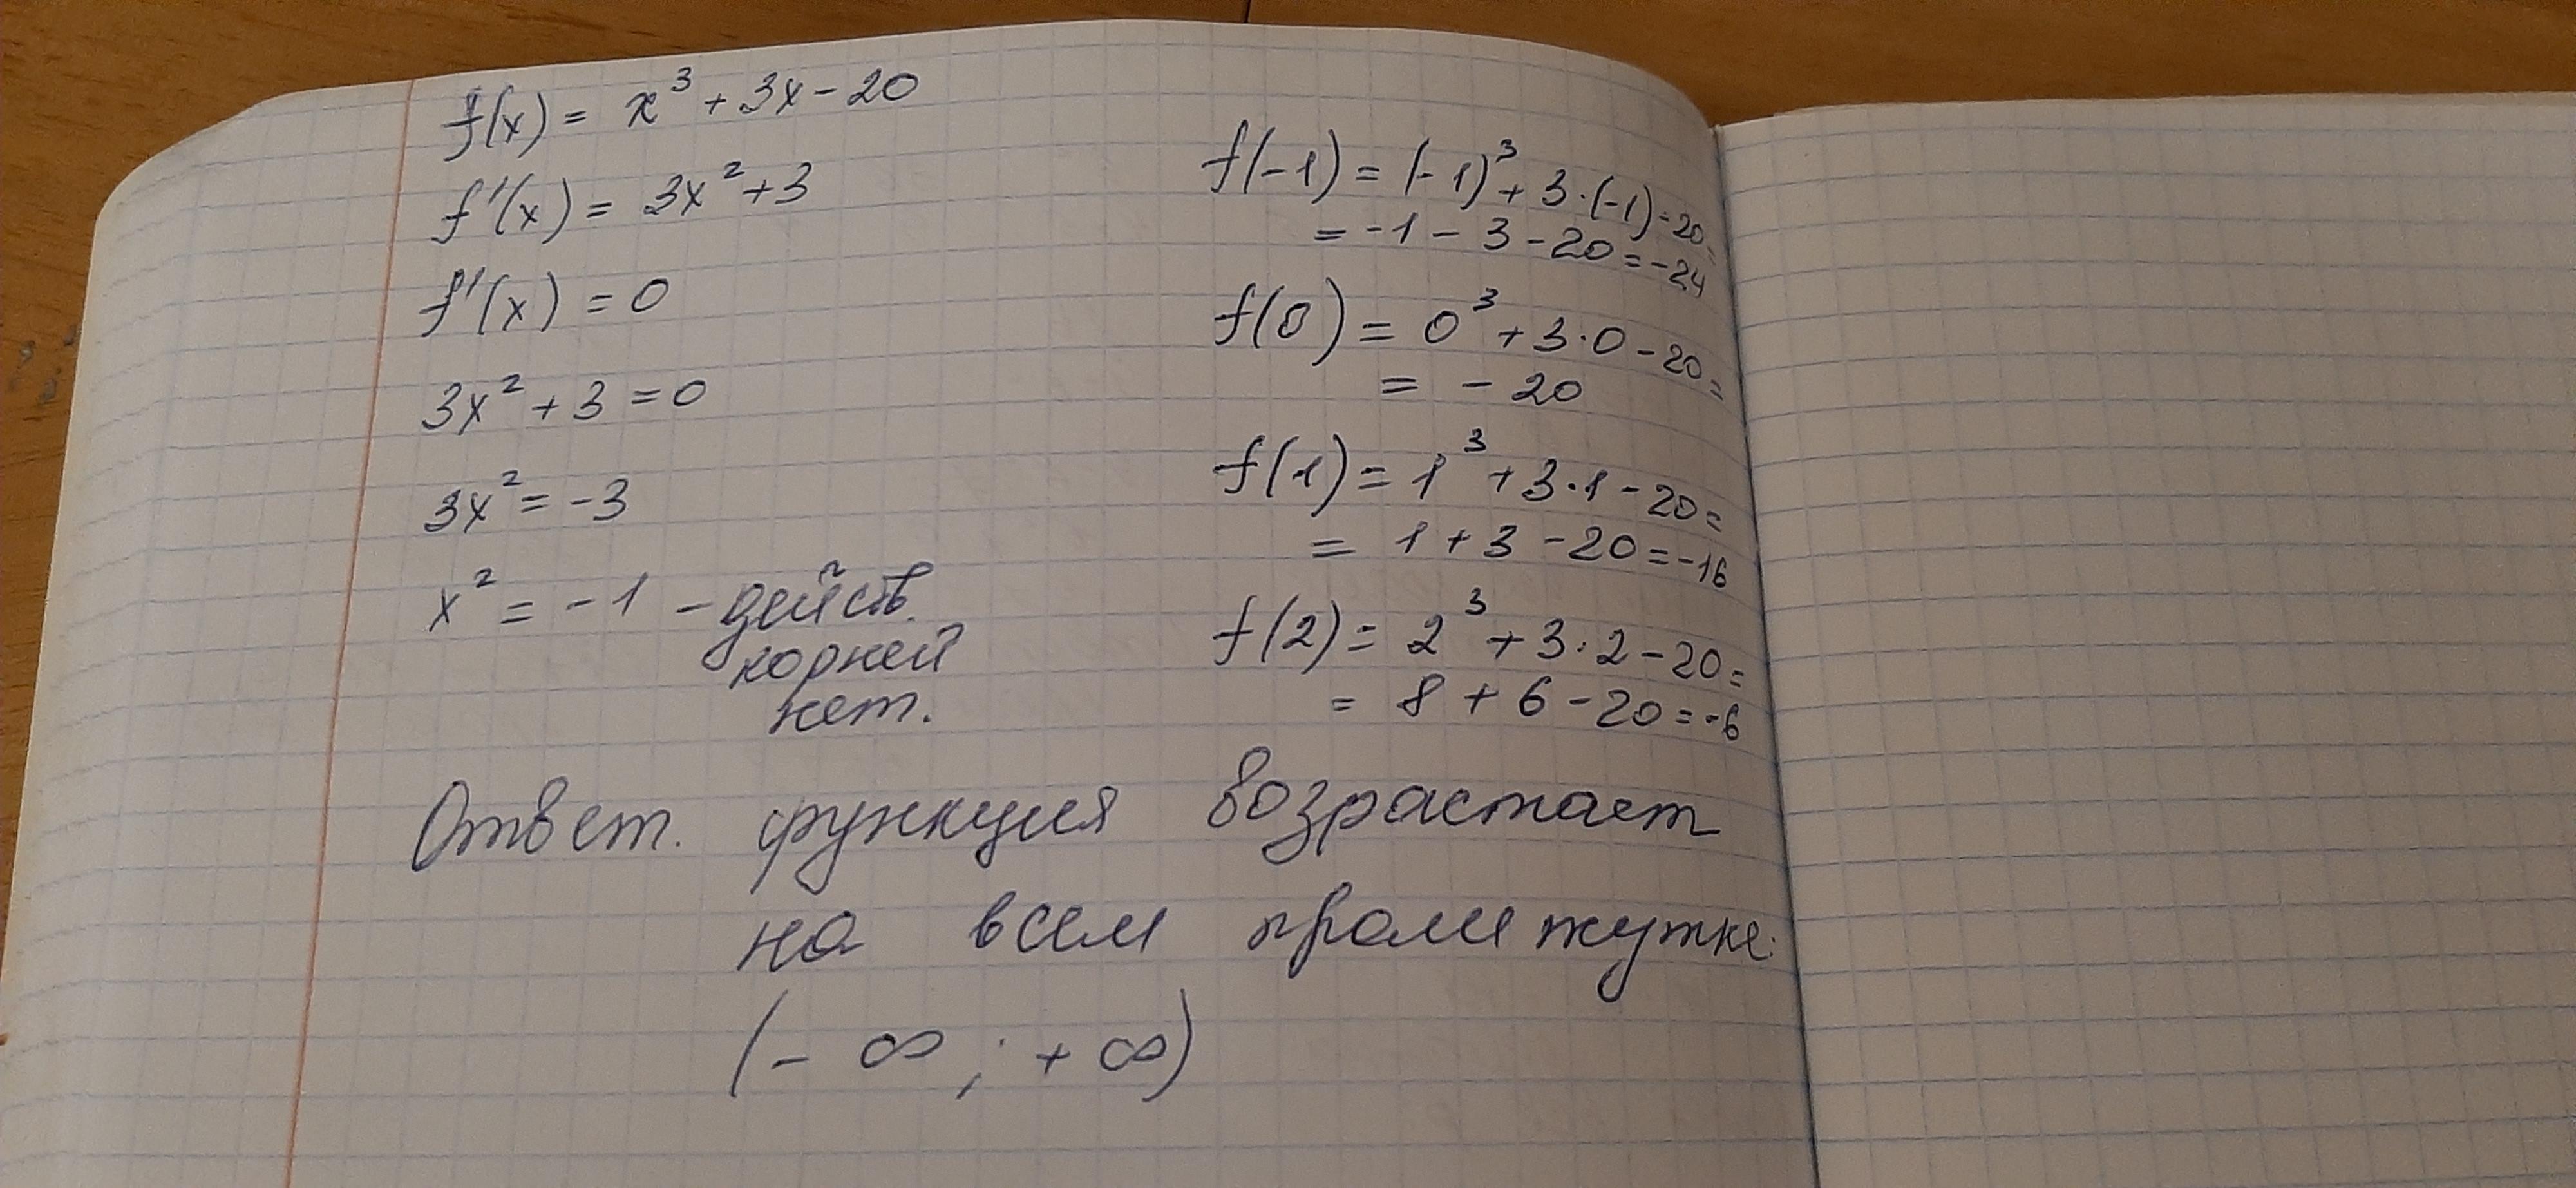 f(x) = x³ + 3x - 20
f'(x) = 3x² + 3
f'(x) = 0
3x² + 3 = 0
3x² = -3
x² = -1 - действ.
корней
нет.
f(-1) = (-1)³ + 3·(-1) - 20 =
= -1 - 3 - 20 = -24
f(0) = 0³ + 3·0 - 20 =
= - 20
f(1) = 1³ + 3·1 - 20 =
= 1 + 3 - 20 = -16
f(2) = 2³ + 3·2 - 20 =
= 8 + 6 - 20 = -6
Ответ. функция возрастает
на всем промежутке.
(- ∞ ; + ∞)